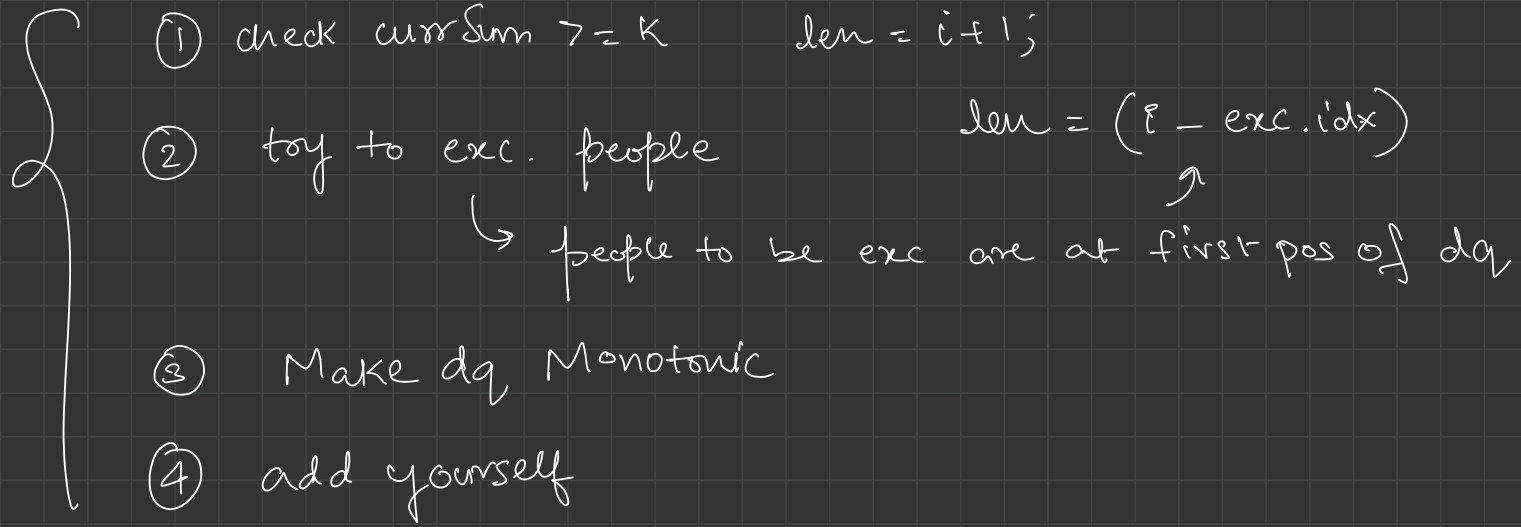 ① check currSum >= K len = i+1;
len = (i - exc.idx)
② try to exc. people
people to be exc are at first pos of dq
③ Make dq Monotonic
④ add yourself